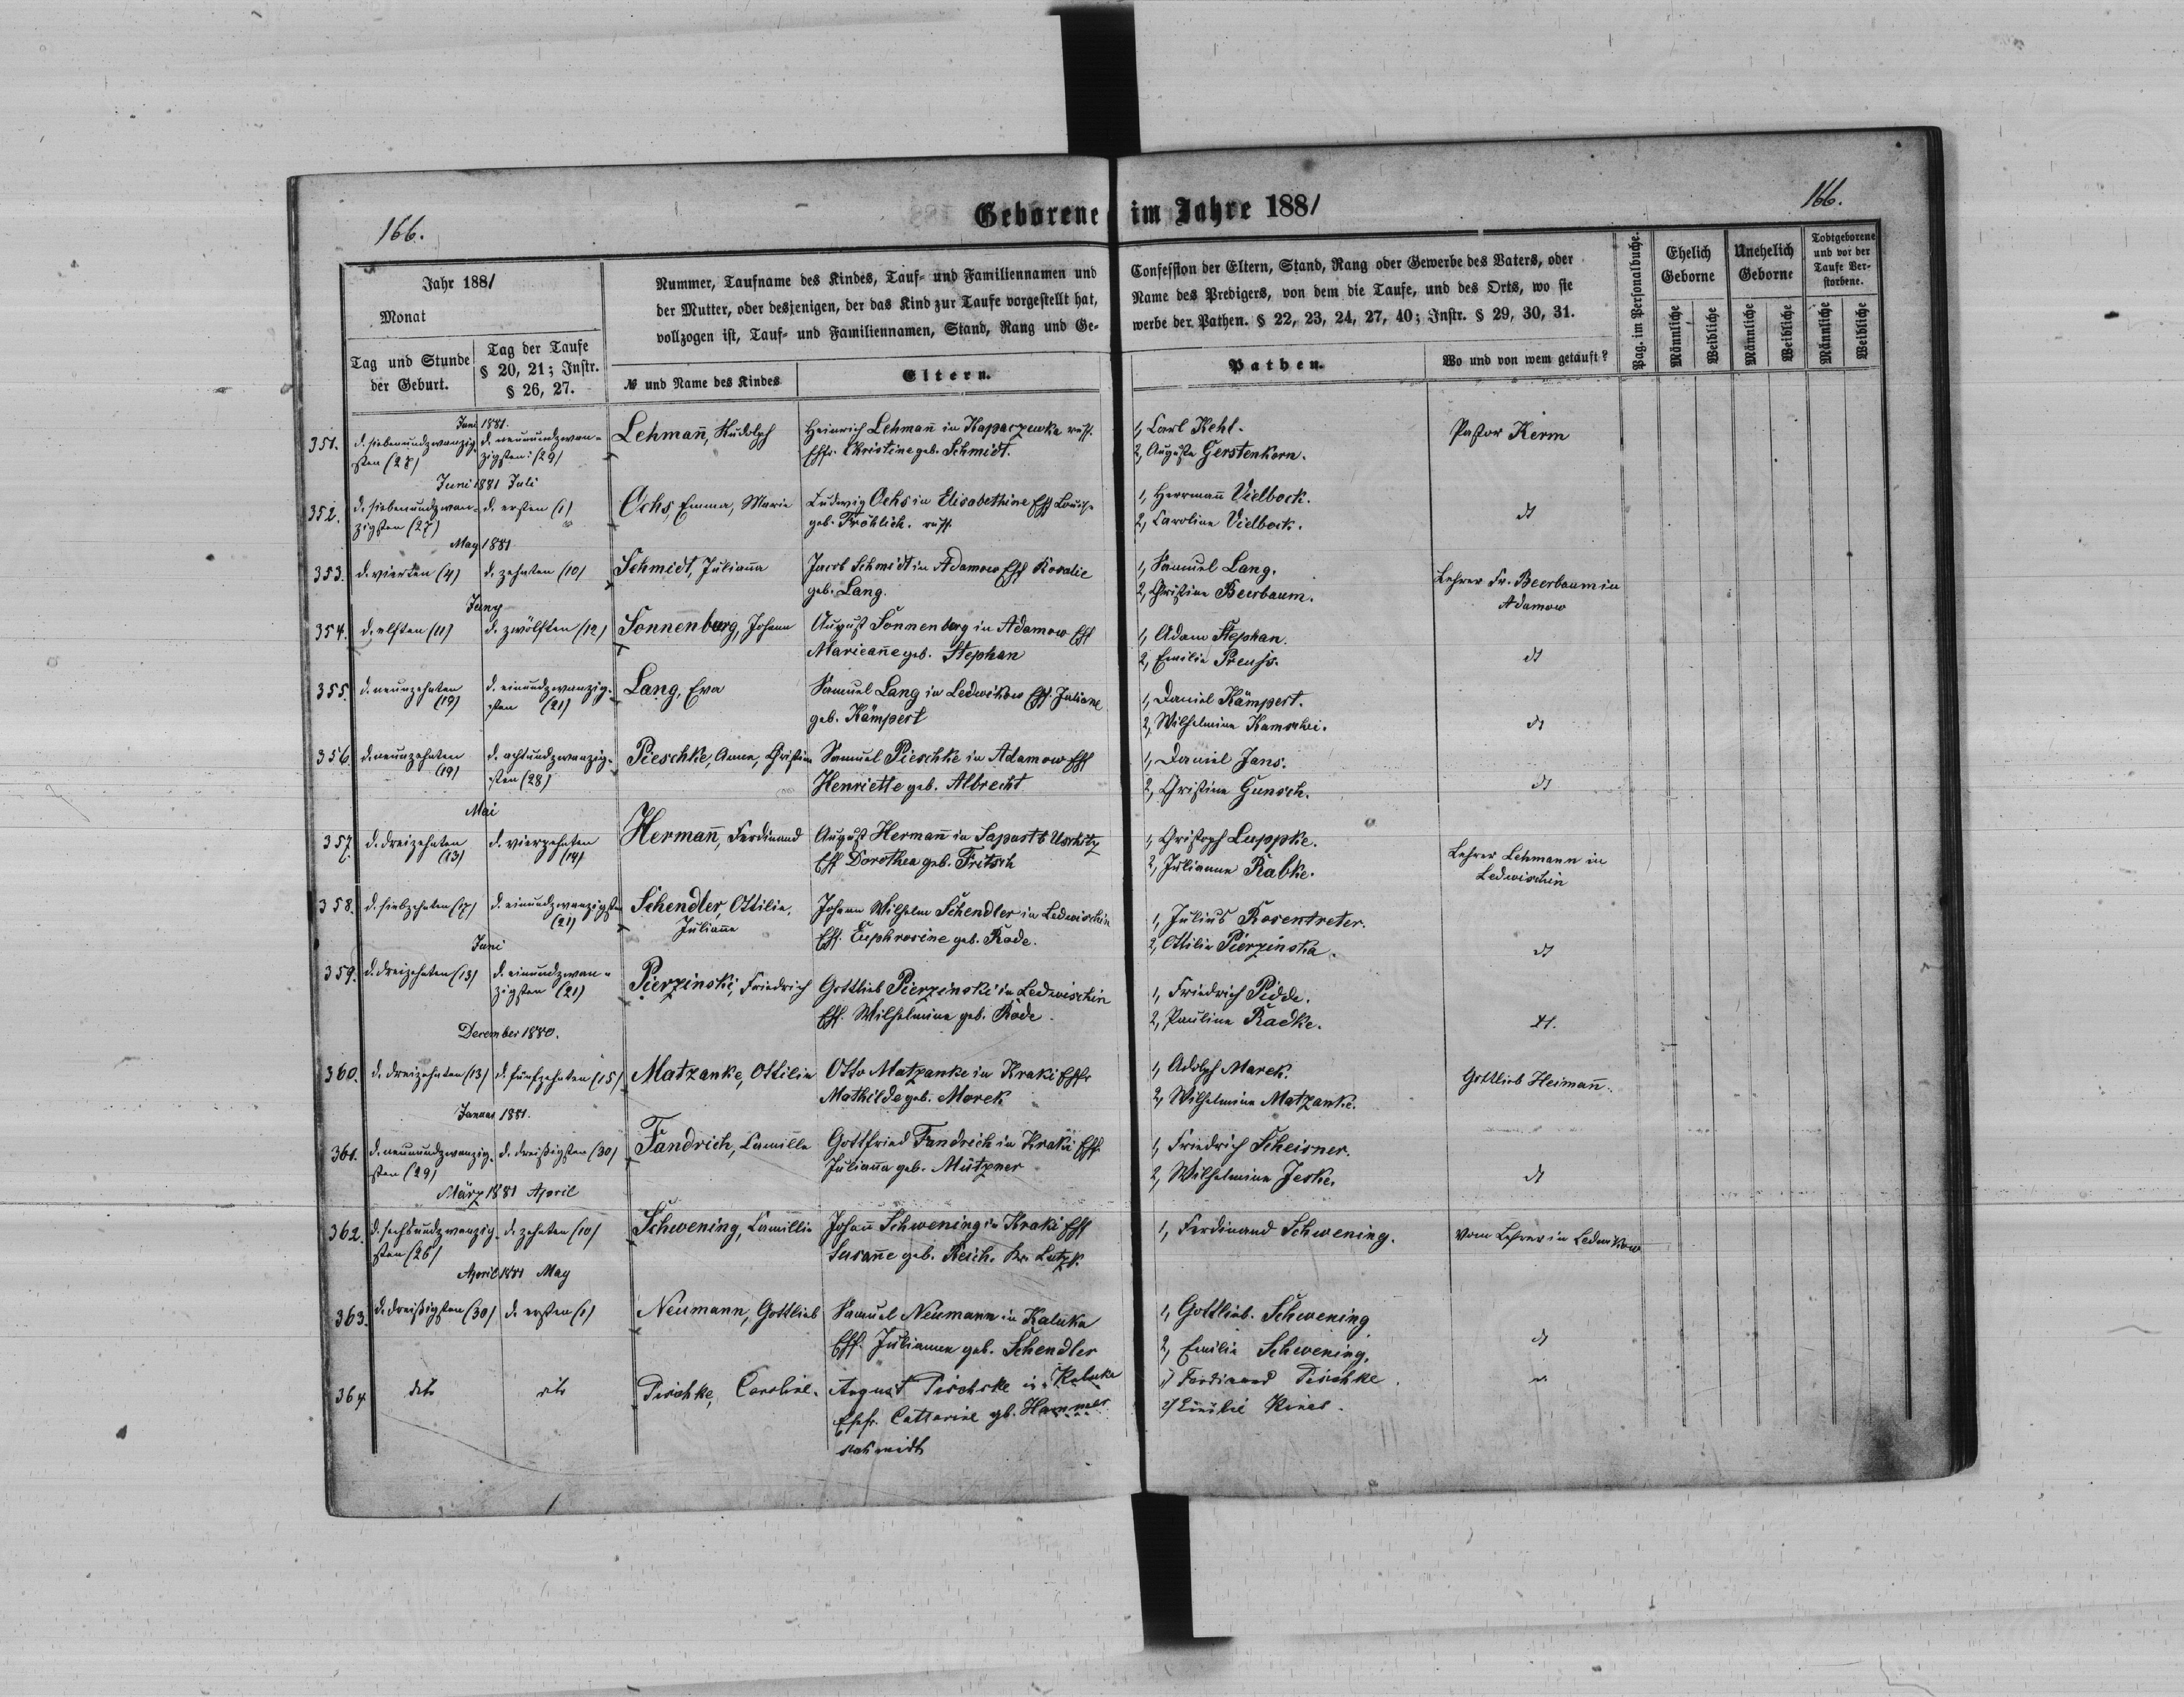 166.
Geborene im Jahre 1881
166.
Jahr 1881
Monat
Tag und Stunde der Geburt.
Tag der Taufe § 20, 21; Instr. § 26, 27.
Nummer, Taufname des Kindes, Tauf- und Familiennamen und
der Mutter, oder desjenigen, der das Kind zur Taufe vorgestellt hat,
vollzogen ist, Tauf- und Familiennamen, Stand, Rang und Ge-
№ und Name des Kindes
Eltern.
Confession der Eltern, Stand, Rang oder Gewerbe des Vaters, oder
Name des Predigers, von dem die Taufe, und des Orts, wo sie
werbe der Pathen. § 22, 23, 24, 27, 40; Instr. § 29, 30, 31.
Pathen.
Wo und von wem getauft?
Pag. im Personalbuche.
Ehelich Geborne
Unehelich Geborne
Todtgeborene und vor der Taufe Verstorbene.
Männliche
Weibliche
Männliche
Weibliche
Männliche
Weibliche
Juni 1881.
351. d. siebenundzwanzig- d. neunundzwan- Lehmañ, Rudolph Heinrich Lehmañ in Kapaczewka russ. 1, Carl Kehl. Pastor Kerm
sten zigsten (29) Ehfr. Christine geb. Schmidt. 2, Auguste Gerstenkorn.
Juni 1881 Juli
352. d. siebenundzwan- d. ersten (1) Ochs, Emma, Marie Ludwig Ochs in Elisabethine Eff Louise 1, Herrmañ Vielbock. dt
zigsten (27) geb. Fröhlich. russ 2, Caroline Vielbock.
May 1881
353. d. vierten (4) d. zehnten (10) Schmidt, Juliaña Jacob Schmidt in Adamow Eff Rosalie 1, Samuel Lang. Lehrer Fr. Beerbaum in
geb. Lang. 2, Christine Beerbaum. Adamow
Juny
354. d. elften (11) d. zwölften (12) Sonnenburg, Johann August Sonnenberg in Adamow Eff 1, Adam Stephan.
Marieañe geb. Stephan 2, Emilie Preuss. dt
355. d. neunzehnten d. einundzwanzig- Lang, Eva Samuel Lang in Ledwikow Eff. Juliane 1, Daniel Kämpert.
(19) sten (21) geb. Kämpert 2, Wilhelmine Kamschei. dt
356. d. neunzehnten d. achtundzwanzig- Pieschke, Anna, Christine Samuel Pieschke in Adamow Eff 1, Daniel Jans.
(19) sten (28) Henriette geb. Albrecht 2, Christine Gunsch. dt
Mai
357. d. dreizehnten d. vierzehnten Hermañ, Ferdinand August Hermañ in Sapust b Uschitz 1, Christoph Luppke. Lehrer Lehmann in
(13) (14) Eff Dorothea geb. Fritsch 2, Julianna Rabke. Ledwischin
358. d. siebzehnten (17) d. einundzwanzigsten Schendler, Ottilie, Johann Wilhelm Schendler in Ledwischin 1, Julius Rosentreter.
(21) Juliañe Eff. Euphrosine geb. Rode. 2, Ottilie Pierzinska. dt
Juni
359. d. dreizehnten (13) d. einundzwan- Pierzinski, Friedrich Gottlieb Pierzinski in Ledwischin 1, Friedrich Pidde.
zigsten (21) Eff. Wilhelmine geb. Rode. 2, Pauline Radke. dt.
December 1880.
360. d. dreizehnten (13) d. fünfzehnten (15) Matzanke, Ottilie Otto Matzanke in Kraki Ehfr 1, Adolph Marek. Gottlieb Heimañ.
Mathilde geb. Marek 2, Wilhelmine Matzanke.
Januar 1881.
361. d. neunundzwanzig- d. dreißigsten (30) Fandrich, Camille Gottfried Fandrich in Kraki Eff. 1, Friedrich Scheisner.
sten (29) Juliaña geb. Mützner 2, Wilhelmine Jeske. dt
März 1881 April
362. d. sechsundzwanzig- d. zehnten (10) Schwening, Camillie Johañ Schwening in Kraki Eff 1, Ferdinand Schwening. Vom Lehrer in Ledwikow
sten (26) Susañe geb. Reich. Kr. Lutzk.
April 1881 May
363. d. dreißigsten (30) d. ersten (1) Neumann, Gottlieb Samuel Neumann in Kaluka 1, Gottlieb. Schwening
Eff. Julianna geb. Schendler 2, Emilie Schwening. dt
364 dito dito Pischke, Caroline. August Pischske in Kaluka 1) Ferdinand Pischke.
Ehfr. Catterine gb. Hammer 2) Emilie
schmidt